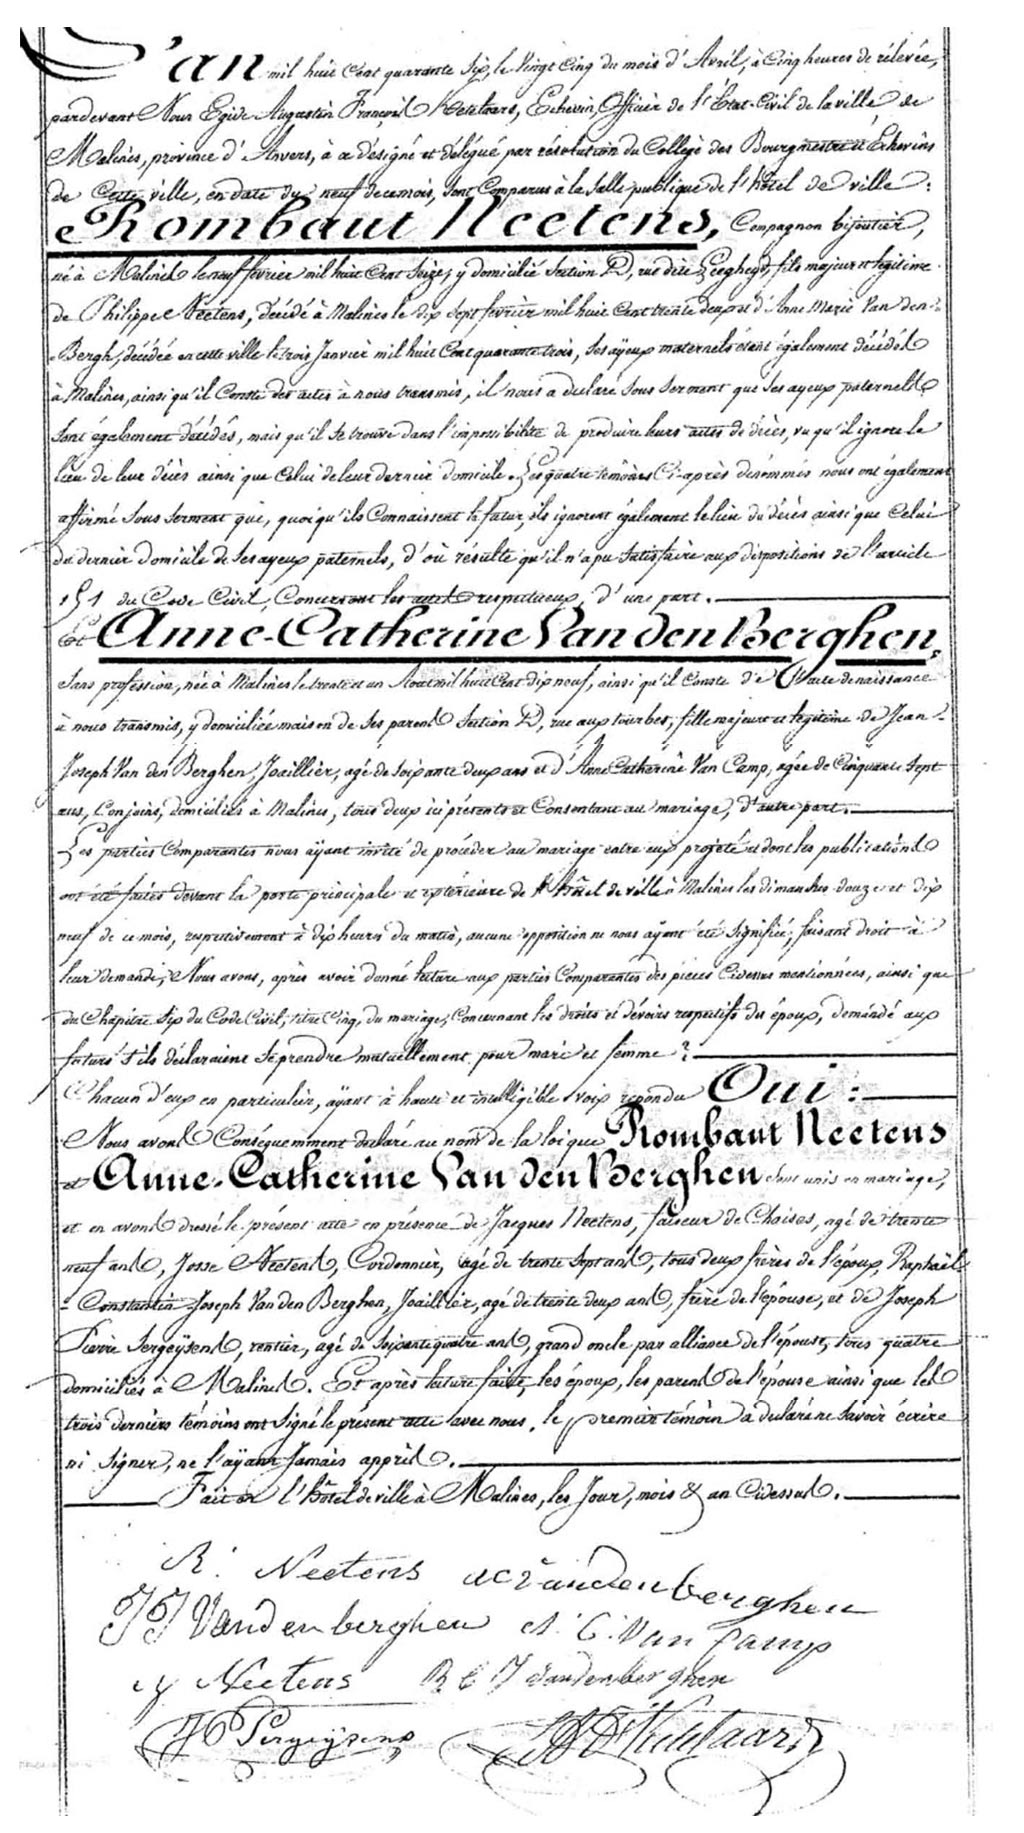 L'an mil huit Cent quarante Six, le Vingt Cinq du mois d'Avril, à Cinq heures de rélevée,
pardevant Nous Egide Augustin François, Echevin, Officier de l'Etat-Civil de la ville de
Malines, province d'Anvers, à ce désigné et délégué par résolution du Collége des Bourgmestre et Echevins
de Cette ville, en date du neuf de ce mois, sont Comparus à la Salle publique de l'hôtel de ville:
Rombaut Neetens, Compagnon bijoutier,
né à Malines le neuf fevrier mil huit Cent Seize, y domicilié Section D, rue dite, fils majeur et légitime
de Philippe Neetens, décédé à Malines le dix Sept fevrier mil huit Cent trente deux et d'Anne Marie Van den-
Bergh, décédée en cette ville le trois Janvier mil huit Cent quarante trois, Ses ayeux maternels étant également décédés
à Malines, ainsi qu'il Conste des actes à nous transmis, il nous a declaré Sous Serment que Ses ayeux paternels
Sont également décédés, mais qu'il Se trouve dans l'impossibilité de produire leurs actes de décès, vu qu'il ignore le
lieu de leur décès ainsi que Celui de leur dernier domicile. Les quatre témoins Ci-après dénommés nous ont également
affirmé Sous Serment que, quoiqu'ils Connaissent le futur, ils ignorent également le lieu du décès ainsi que Celui
du dernier domicile de Ses ayeux paternels, d'où résulte qu'il n'a pu Satisfaire aux dispositions de l'article
151 du Code Civil, Concernant les actes respectueux, d'une part.
Et Anne-Catherine Van den Berghen,
Sans profession, née à Malines le trente et un Aout mil huit Cent dix neuf, ainsi qu'il Conste de l'acte de naissance
à nous transmis, y domiciliée maison de Ses parens Section D, rue aux tourbes, fille majeure et légitime de Jean-
Joseph Van den Berghen, Joaillier, agé de Soixante deux ans et d'Anne Catherine Van Camp, agée de Cinquante Sept
ans, Conjoins, domiciliés à Malines, tous deux ici présents et Consentant au mariage, d'autre part.
Les parties Comparantes nous ayant invité de procéder au mariage entre eux projeté et dont les publications
ont été faites devant la porte principale et extérieure de l'hôtel de ville à Malines les dimanches douze et dix
neuf de ce mois, respectivement à dix heures du matin, aucune opposition ne nous ayant été Signifiée, faisant droit à
leur demande, Nous avons, après avoir donné lecture aux parties Comparantes des pièces Cidessus mentionnées, ainsi que
du Chapitre Six du Code Civil, titre Cinq, du mariage, Concernant les droits et dévoirs respectifs du époux, demandé aux
futurs S'ils déclaraient Se prendre mutuellement pour mari et femme?
Chacun d'eux en particulier, ayant à haute et intelligible voix repondu Oui:
Nous avons Conséquemment déclaré au nom de la loi que Rombaut Neetens
et Anne-Catherine Van den Berghen sont unis en mariage,
et en avons dressé le présent acte en présence de Jacques Neetens, faiseur de Chaises, agé de trente
neuf ans, Josse Neetens, Cordonnier, agé de trente Sept ans, tous deux frères de l'époux, Raphaël
- Constantin Joseph Van den Berghen, Joaillier, agé de trente deux ans, frère de l'épouse, et de Joseph
Pierre Sergeÿsens, rentier, agé de Soixante quatre ans, grand oncle par alliance de l'épouse, tous quatre
domiciliés à Malines. Et après lecture faite, les époux, les parens de l'épouse ainsi que les
trois derniers témoins ont Signé le présent acte avec nous, le premier témoin a declaré ne Savoir écrire
ni Signer, ne l'aÿant Jamais appris.
Fait en l'hôtel de ville à Malines, les Jour, mois & an Cidessus.
R. Neetens ac vandenberghen
JJ Vandenberghen A. C. Van Camp
Neetens R C J vandenberghen
JP Sergeÿsens